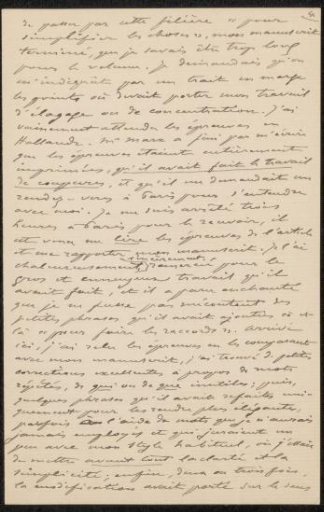 de passer par cette filière « pour
simplifier les choses », mon manuscrit
terminé, que je savais être trop long
pour le volume. Je demandais qu'on
m'indiquât par un trait en marge
les points où devait porter mon travail
d'élagage ou de concentration. J'ai
vainement attendu les épreuves en
Hollande. Mr Marx a fini par m'écrire
que les épreuves étaient entièrement
imprimées, qu'il avait fait le travail
de coupures, et qu'il me demandait un
rendez-vous à Paris pour s'entendre
avec moi. Je me suis arrêté trois
heures à Paris pour le recevoir, il
est venu me lire les épreuves de l'article
et me rapporter mon manuscrit. Je l'ai
chaleureusement, sincèrement, remercié pour le
gros et ennuyeux travail qu'il
avait fait, et il a paru enchanté
que je ne fusse pas mécontent des
petites phrases qu'il avait ajoutées çà et
là « pour faire les raccords ». Arrivé
ici, j'ai relu les épreuves en les comparant
avec mon manuscrit, j'ai trouvé de petites
corrections excellentes à propos de mots
répétés, de qui ou de que inutiles; puis,
quelques phrases qu'il avait refaites uni-
quement pour les rendre plus élégantes,
parfois à l'aide de mots que je n'aurais
jamais employés et qui juraient un
peu avec mon style habituel, où j'essaie
de mettre avant tout la clarté et la
simplicité; enfin, deux ou trois fois,
la modification avait porté sur le sens